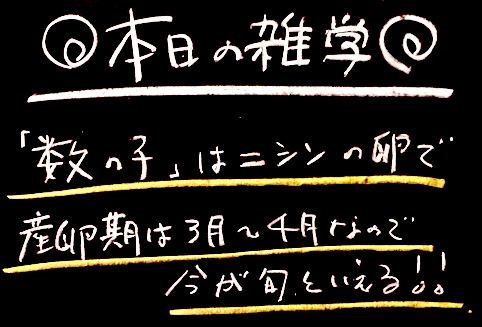 本日の雑学
「数の子」はニシンの卵で
産卵期は3月~4月なので
今が旬といえる!!